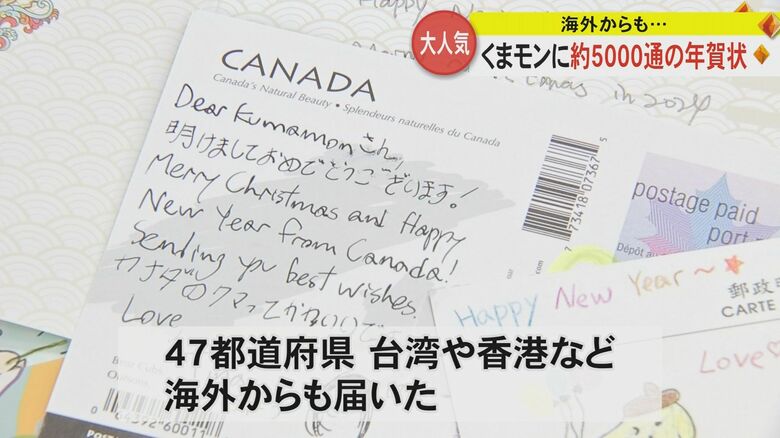 海外からも…
大人気
くまモンに約5000通の年賀状
in 2024
CANADA
Canada's Natural Beauty • Splendeurs naturelles du Canada
Dear Kumamonさん、
明けましておめでとうございます!
Merry Christmas and Happy
New Year from Canada!
Sending you best wishes.
カナダのクマってかわいいで
Love
5
73418 07367
postage paid
port
Dépôt
Happy New Year ~ ★
郵政
CARTE
Love
47都道府県 台湾や香港など
海外からも届いた
64392 60011